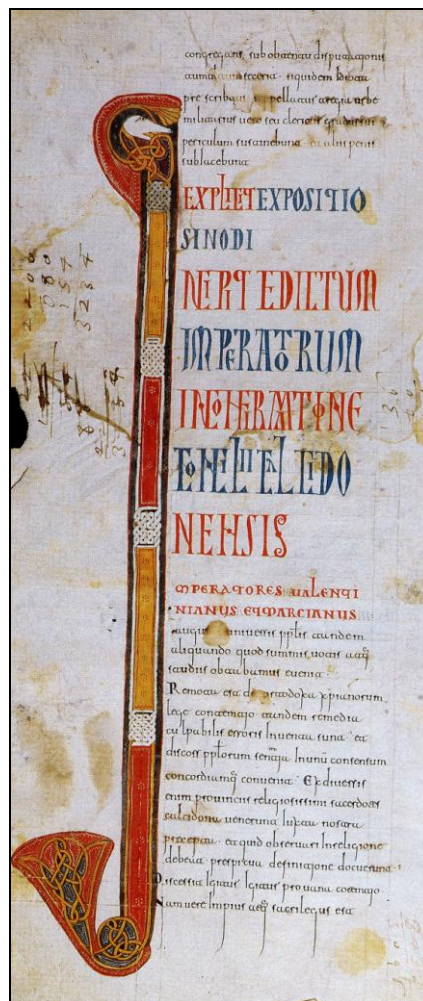 congregans, sub obtentu disputationis
pre scribatur
militantibus vero seu clericis gradus sui
periculum sustinebunt · et aliis penis
subiacebunt
EXPLICIT EXPOSITIO
SINODI
NCIPIT EDICTUM
IMPERATORUM
IN CONFIRMATIONE
CONCILII CALCEDO
NENSIS
MPERATORES UALENTI
NIANUS ET MARCIANUS
universis pplis tandem
aliquando quod summis votis atq
studiis obtabamus evenit ·
Remota est de ortodoxa xpianorum
lege contentio tandem remedia
culpabilis erroris inventa sunt · et
discors pplorum sentia in unum consensum
concordiamq convenit · Ex diversis
enim provinciis religiosissimi sacerdotes
calcidona venerunt iuxta nostra
precepta · et quid observari in religione
debeat prespicua definitione docuerunt ·
Discessit igitur igitur profana contentio
Nam vere impius atq sacrilegus est